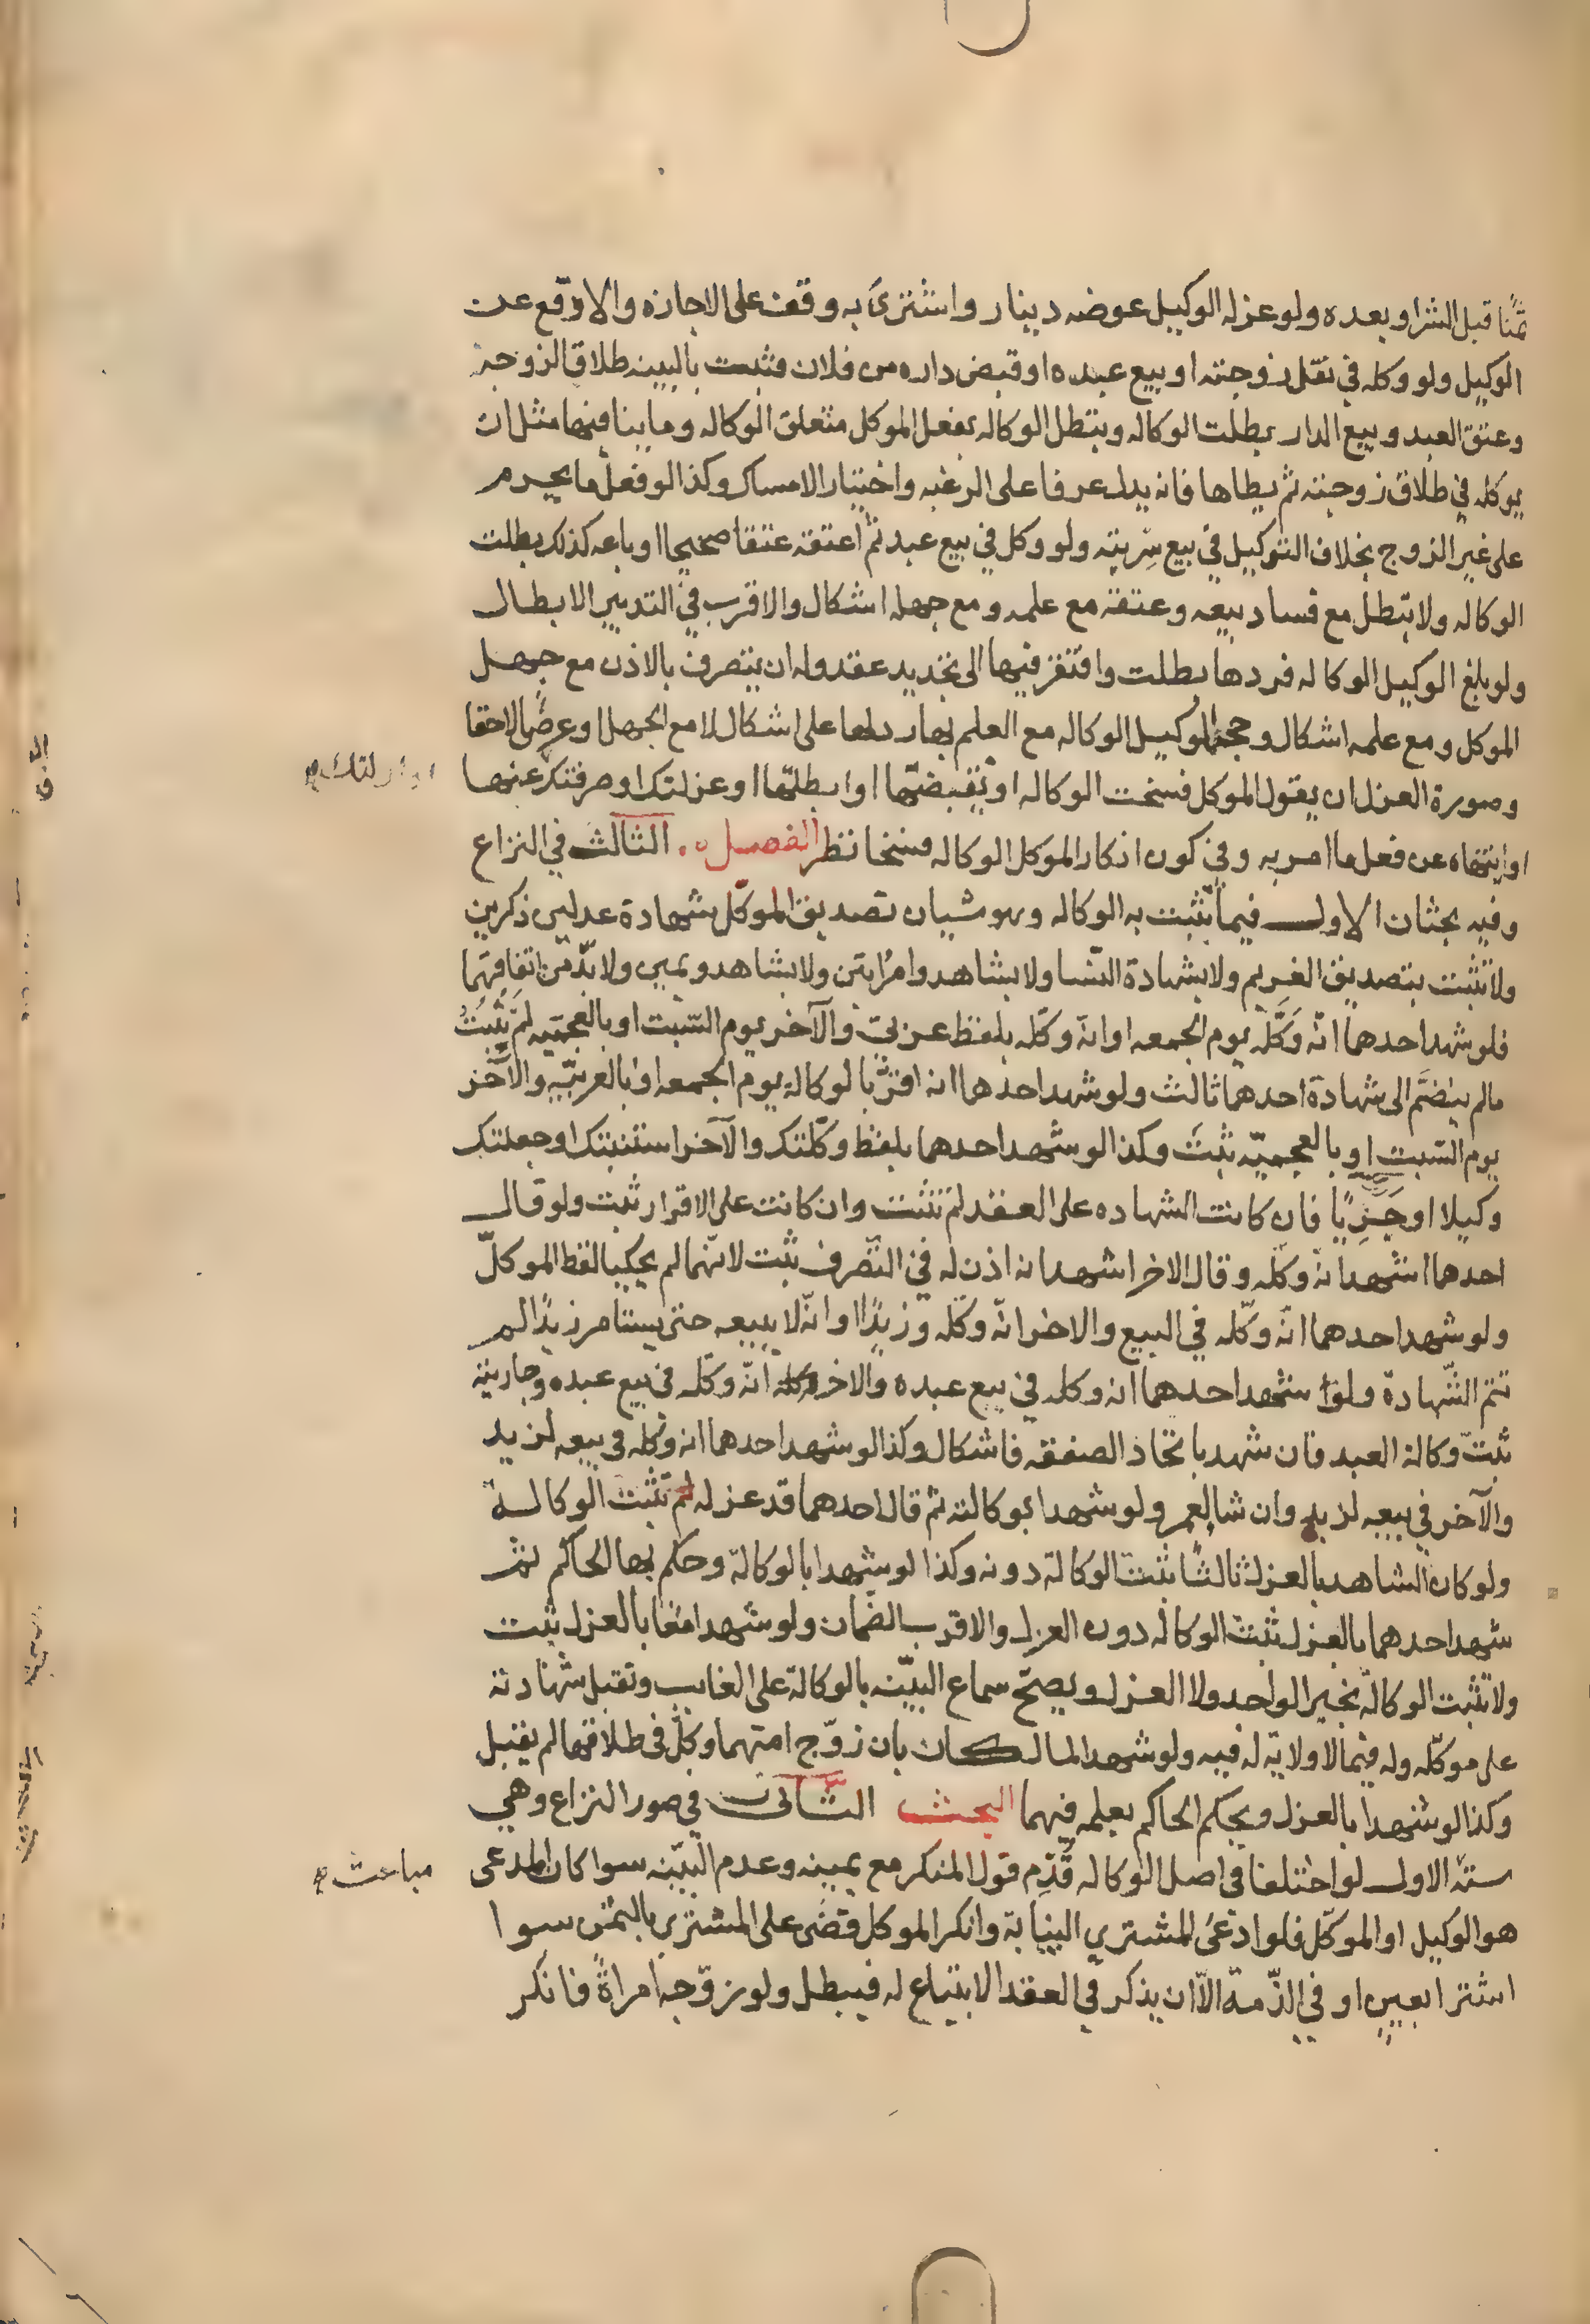 ثمنا قبل الشرا وبعده ولو عزله الوكيل عوضه دينار واشترى به وقف على الاجازه والا وقع عن
الوكيل ولو وكله في نقل زوجته او بيع عبده او قبض داره من فلان فثبت بالبينه طلاق الزوجه
وعتق العبد وبيع الدار بطلت الوكاله وتبطل الوكاله بفعل الموكل متعلق الوكاله وما ينافيها مثل ان
يوكله في طلاق زوجته ثم يطاها فانه يدل عرفا على الرغبه واختيار الامساك وكذا لو فعل ما يحرم
على غير الزوج بخلاف التوكيل في بيع سريته ولو وكل في بيع عبد ثم اعتقه عتقا صحيحا او باعه كذلك بطلت
الوكاله ولا تبطل مع فساد بيعه وعتقه مع علمه ومع جهله اشكال والاقرب في التدبير الابطال
ولو بلغ الوكيل الوكاله فردها بطلت وافتقر فيها الى تجديد عقد وله ان يتصرف بالاذن مع جهل
الموكل ومع علمه اشكال وجحد الموكيل الوكاله مع العلم بها رد لها على اشكال لا مع الجهل او عرض الاخفا
وصورة العزل ان يقول الموكل فسخت الوكاله او نقضتها او ابطلتها او عزلتك او صرفتك عنها
او اينهاه عن فعل ما امر به وفي كون انكار الموكل الوكاله فسخا نظر الفصل الثالث في النزاع
وفيه بحثان الاول فيما تثبت به الوكاله وهو شيان تصديق الموكل شهادة عدلين ذكرين
ولا تثبت بتصديق الغريم ولا بشهادة النسا ولا بشاهد وامراتين ولا بشاهد ويمين ولا بد من اتفاقهما
فلو شهد احدهما انه وكله يوم الجمعه او انه وكله بلفظ عربي والآخر يوم السبت او بالعجميه لم يثبت
مالم ينضم الى شهادة احدهما ثالث ولو شهد احدهما انه اقر بالوكالة يوم الجمعه او بالعربيه والآخر
يوم السبت او بالعجميه ثبت وكذا لو شهد احدهما بلفظ وكلتك والآخر استنبتك او جعلتك
وكيلا او جريا فان كانت الشهاده على العقد لم تثبت وان كانت على الاقرار ثبت ولو قال
احدهما اشهد انه وكله وقال الاخر اشهد انه اذن له في التصرف ثبت لانهما لم يحكيا لفظ الموكل
ولو شهد احدهما انه وكله في البيع والاخر انه وكله وزيدا او انه لا يبيعه حتى يستامر زيدا لم
تتم الشهادة ولو شهد احدهما انه وكله في بيع عبده والاخر انه وكله في بيع عبده وجاريته
ثبت وكالة العبد فان شهد باتحاد الصفقه فاشكال وكذا لو شهد احدهما انه وكله في بيعه لزيد
والآخر في بيعه لزيد وان شا لعمرو ولو شهدا بوكالته ثم قال احدهما قد عزله لم تثبت الوكالة
ولو كان الشاهد بالعزل ثالثا ثبت الوكالة دونه وكذا لو شهدا بالوكالة وحكم بها الحاكم ثم
شهد احدهما بالعزل ثبت الوكاله دون العزل والاقرب الضمان ولو شهدا معا بالعزل ثبت
ولا تثبت الوكالة بخبر الواحد ولا العزل ويصح سماع البينه بالوكالة على الغايب وتقبل شهادته
على موكله وله فيما لا ولايه له فيه ولو شهد المالكان بان زوج امتهما وكل في طلاقها لم يقبل
وكذا لو شهدا بالعزل ويحكم الحاكم بعلمه فيهما البحث الثاني في صور النزاع وهي
سته الاول لو اختلفا في اصل الوكاله قدم قول المنكر مع يمينه وعدم البينه سوا كان المدعي
مباحث
هو الوكيل او الموكل فلو ادعى المشتري النيابة وانكر الموكل قضى على المشتري بالثمن سوا
اشترا بعين او في الذمة الا ان يذكر في العقد الابتياع له فيبطل ولو زوجه امراة فانكر